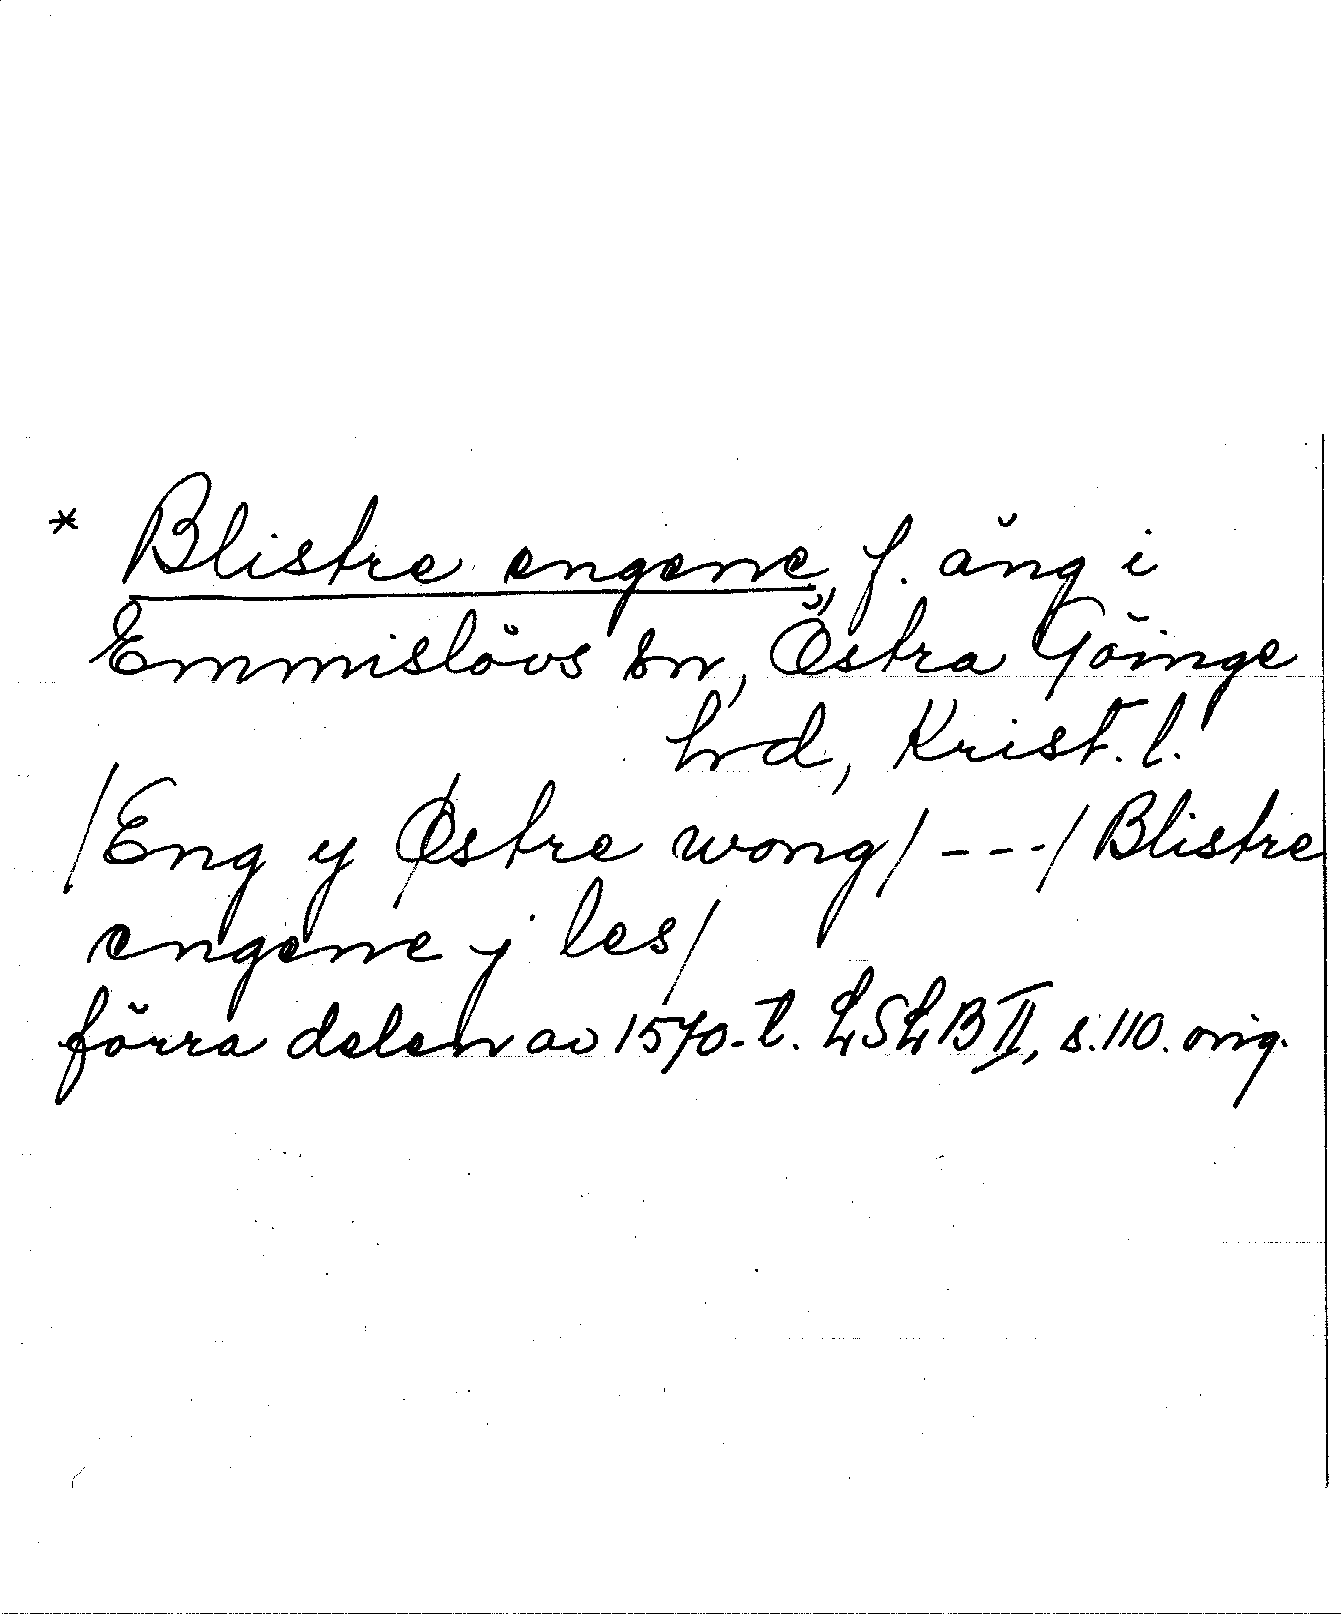 * Blistre engene, f. äng i
Emmislövs sn, Östra Göinge
hd, Krist. l.
/Eng y Østre wong/ ---/ Blistre
engene j les/
förra delen av 1570-t. LSLB II, s. 110. orig.